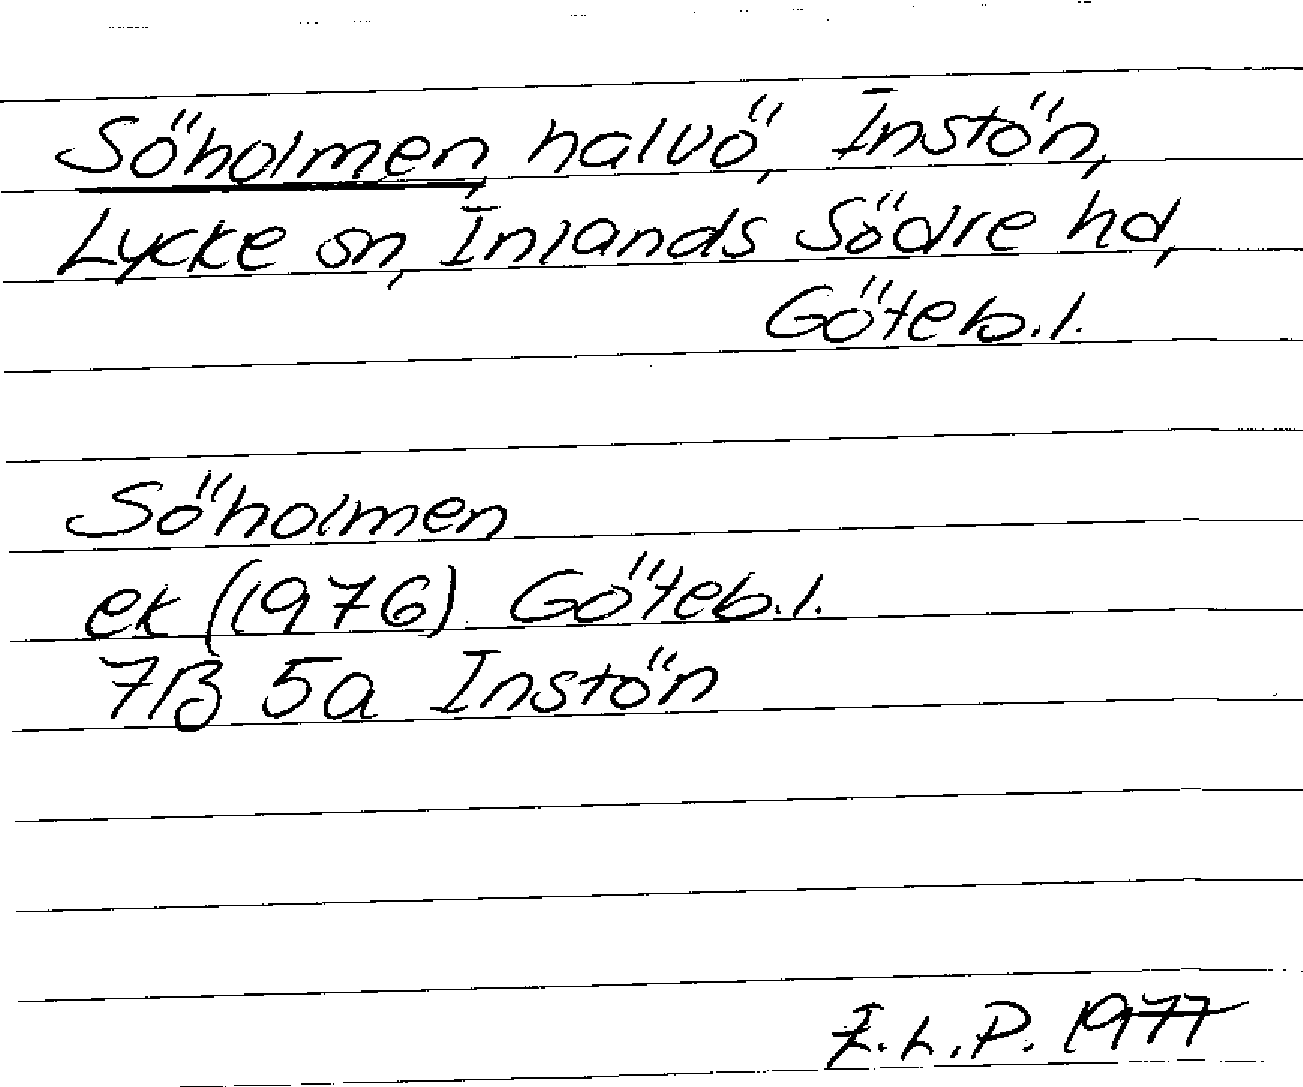 Söholmen, halvö, Instön,
Lycke sn, Inlands Södre hd,
Göteb.l.
Söholmen
ek (1976) Göteb.l.
7B 5a Instön
I.L.P. 1977